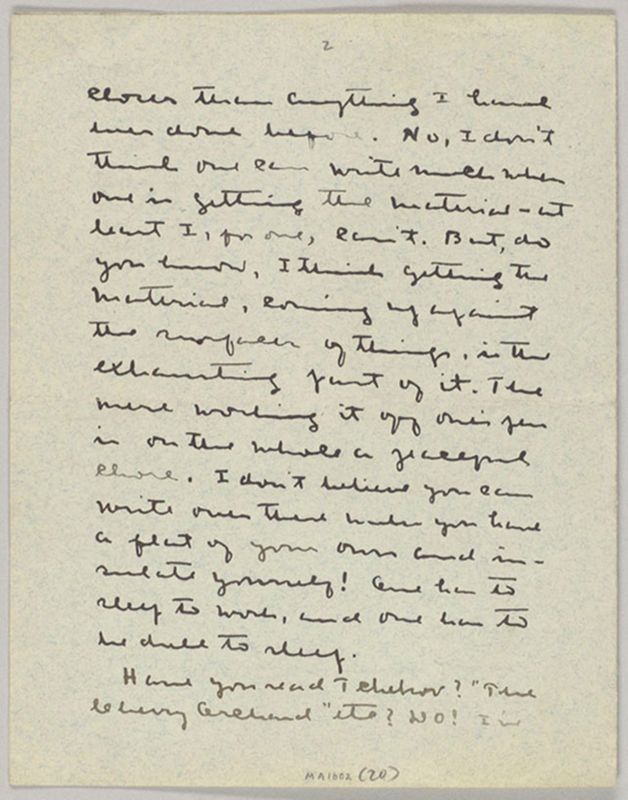 2
closer than anything I have
ever done before. No, I don't
think one can write much when
one is getting the material - at
least I, for one, can't. But, do
you know, I think getting the
material, coming up against
the surfaces of things, is the
exhausting part of it. The
mere working it off one's pen
is on the whole a peaceful
chore. I don't believe you can
write over there unless you have
a flat of your own and in-
sulate yourself! One has to
sleep to work, and one has to
be dull to sleep.
Have you read Tchekov? "The
Cherry Orchard" etc? NO! I'm
MA1602 (20)